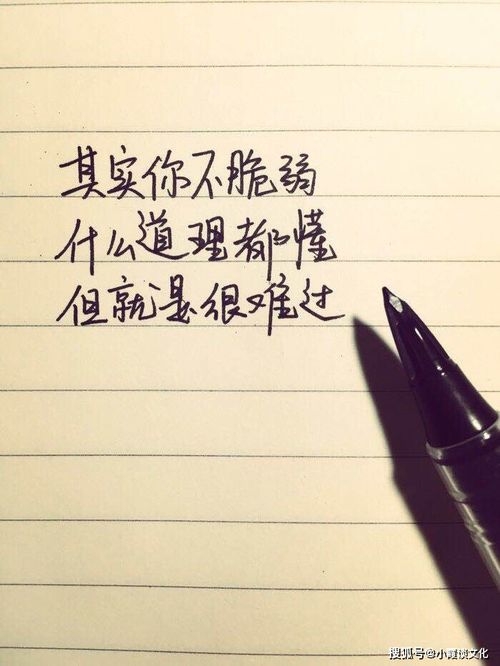 其实你不脆弱
什么道理都懂
但就是很难过
搜狐号@小霞谈文化